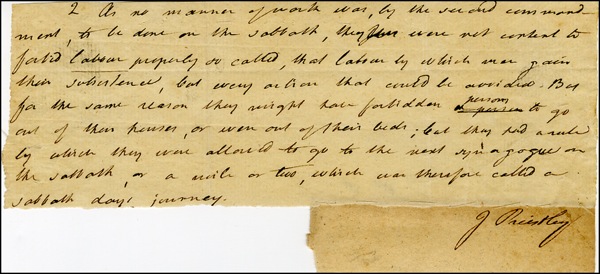 2 As no manner of work was, by the second command
ment, to be done on the sabbath, they were not content to
forbid labour properly so called, that labour by which men gain
their subsistence, but every action that could be avoided. But
for the same reason they might have forbidden persons to go
out of their houses, or even out of their beds; but they had a rule
by which they were allowed to go to the next synagogue on
the sabbath, or a mile or two, which was therefore called a
sabbath days journey.
J Priestley